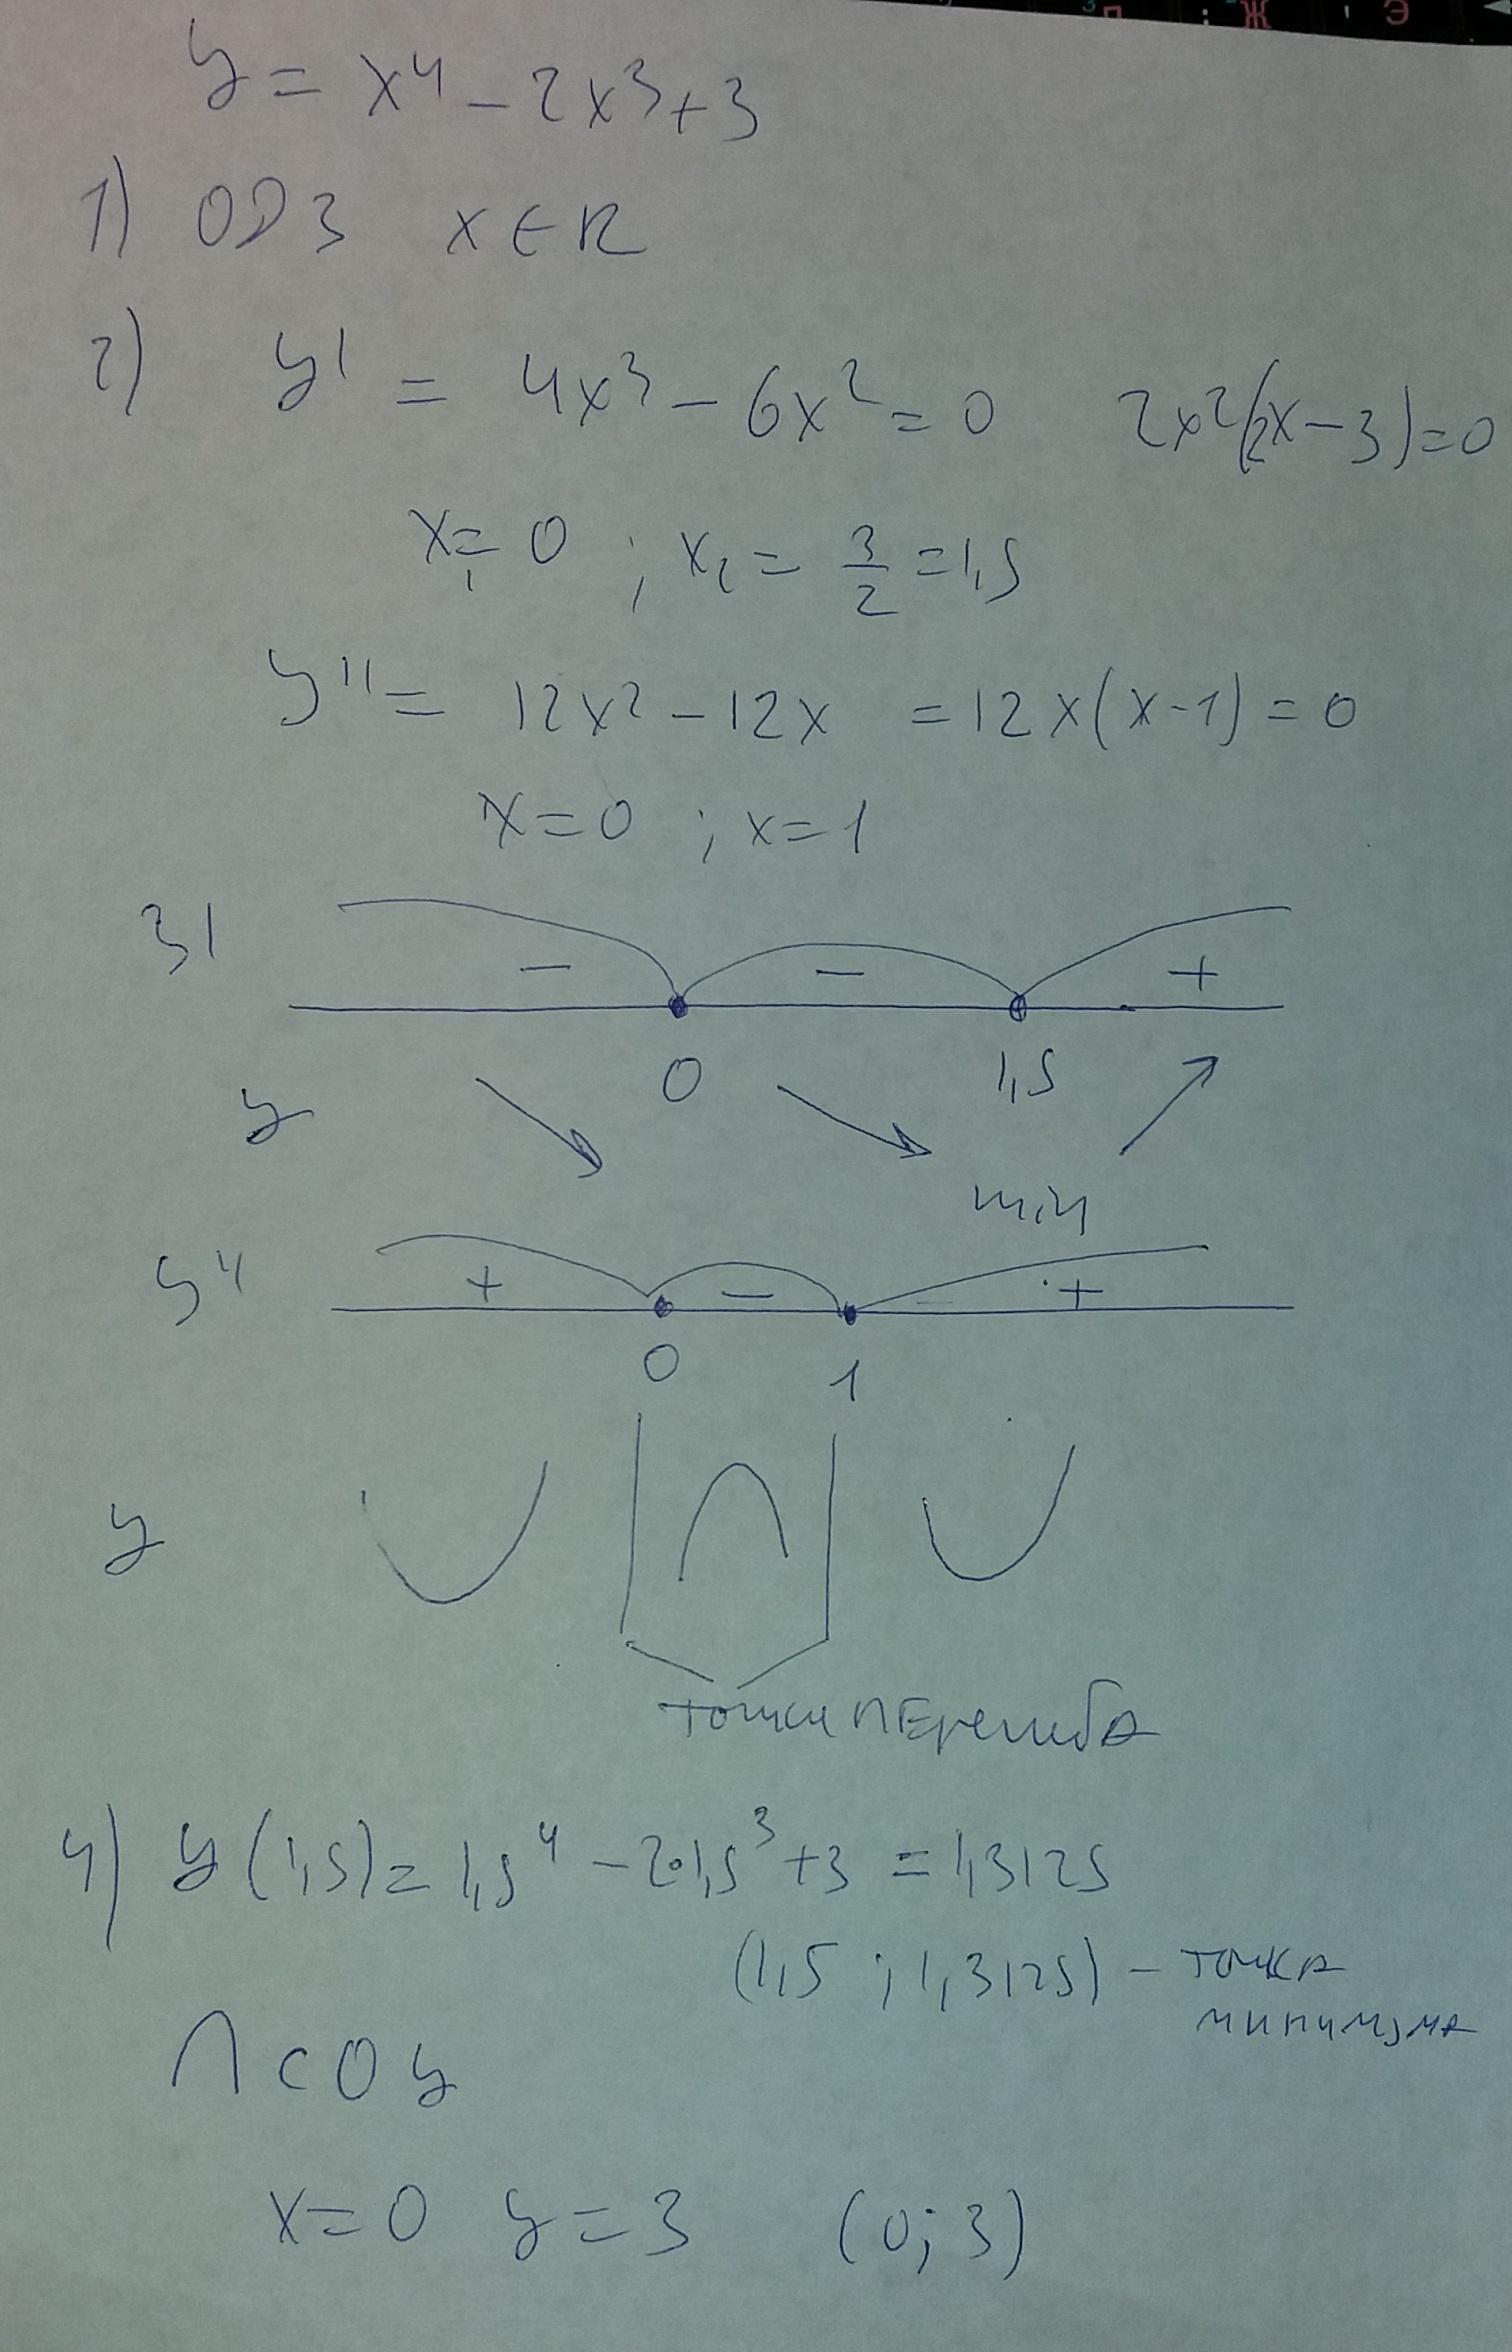 З П ; Ж ' Э
y = x⁴ - 2x³ + 3
1) ОДЗ x ∈ R
2) y' = 4x³ - 6x² = 0 2x²(2x - 3) = 0
x₁ = 0 ; x₂ = 3/2 = 1,5
y'' = 12x² - 12x = 12x(x - 1) = 0
x = 0 ; x = 1
3)
- - +
0 1,5
y
min
y''
+ - +
0 1
y
точки перегиба
4) y(1,5) = 1,5⁴ - 2·1,5³ + 3 = 1,3125
(1,5 ; 1,3125) - точка
минимума
∩ с Oy
x = 0 y = 3 (0; 3)